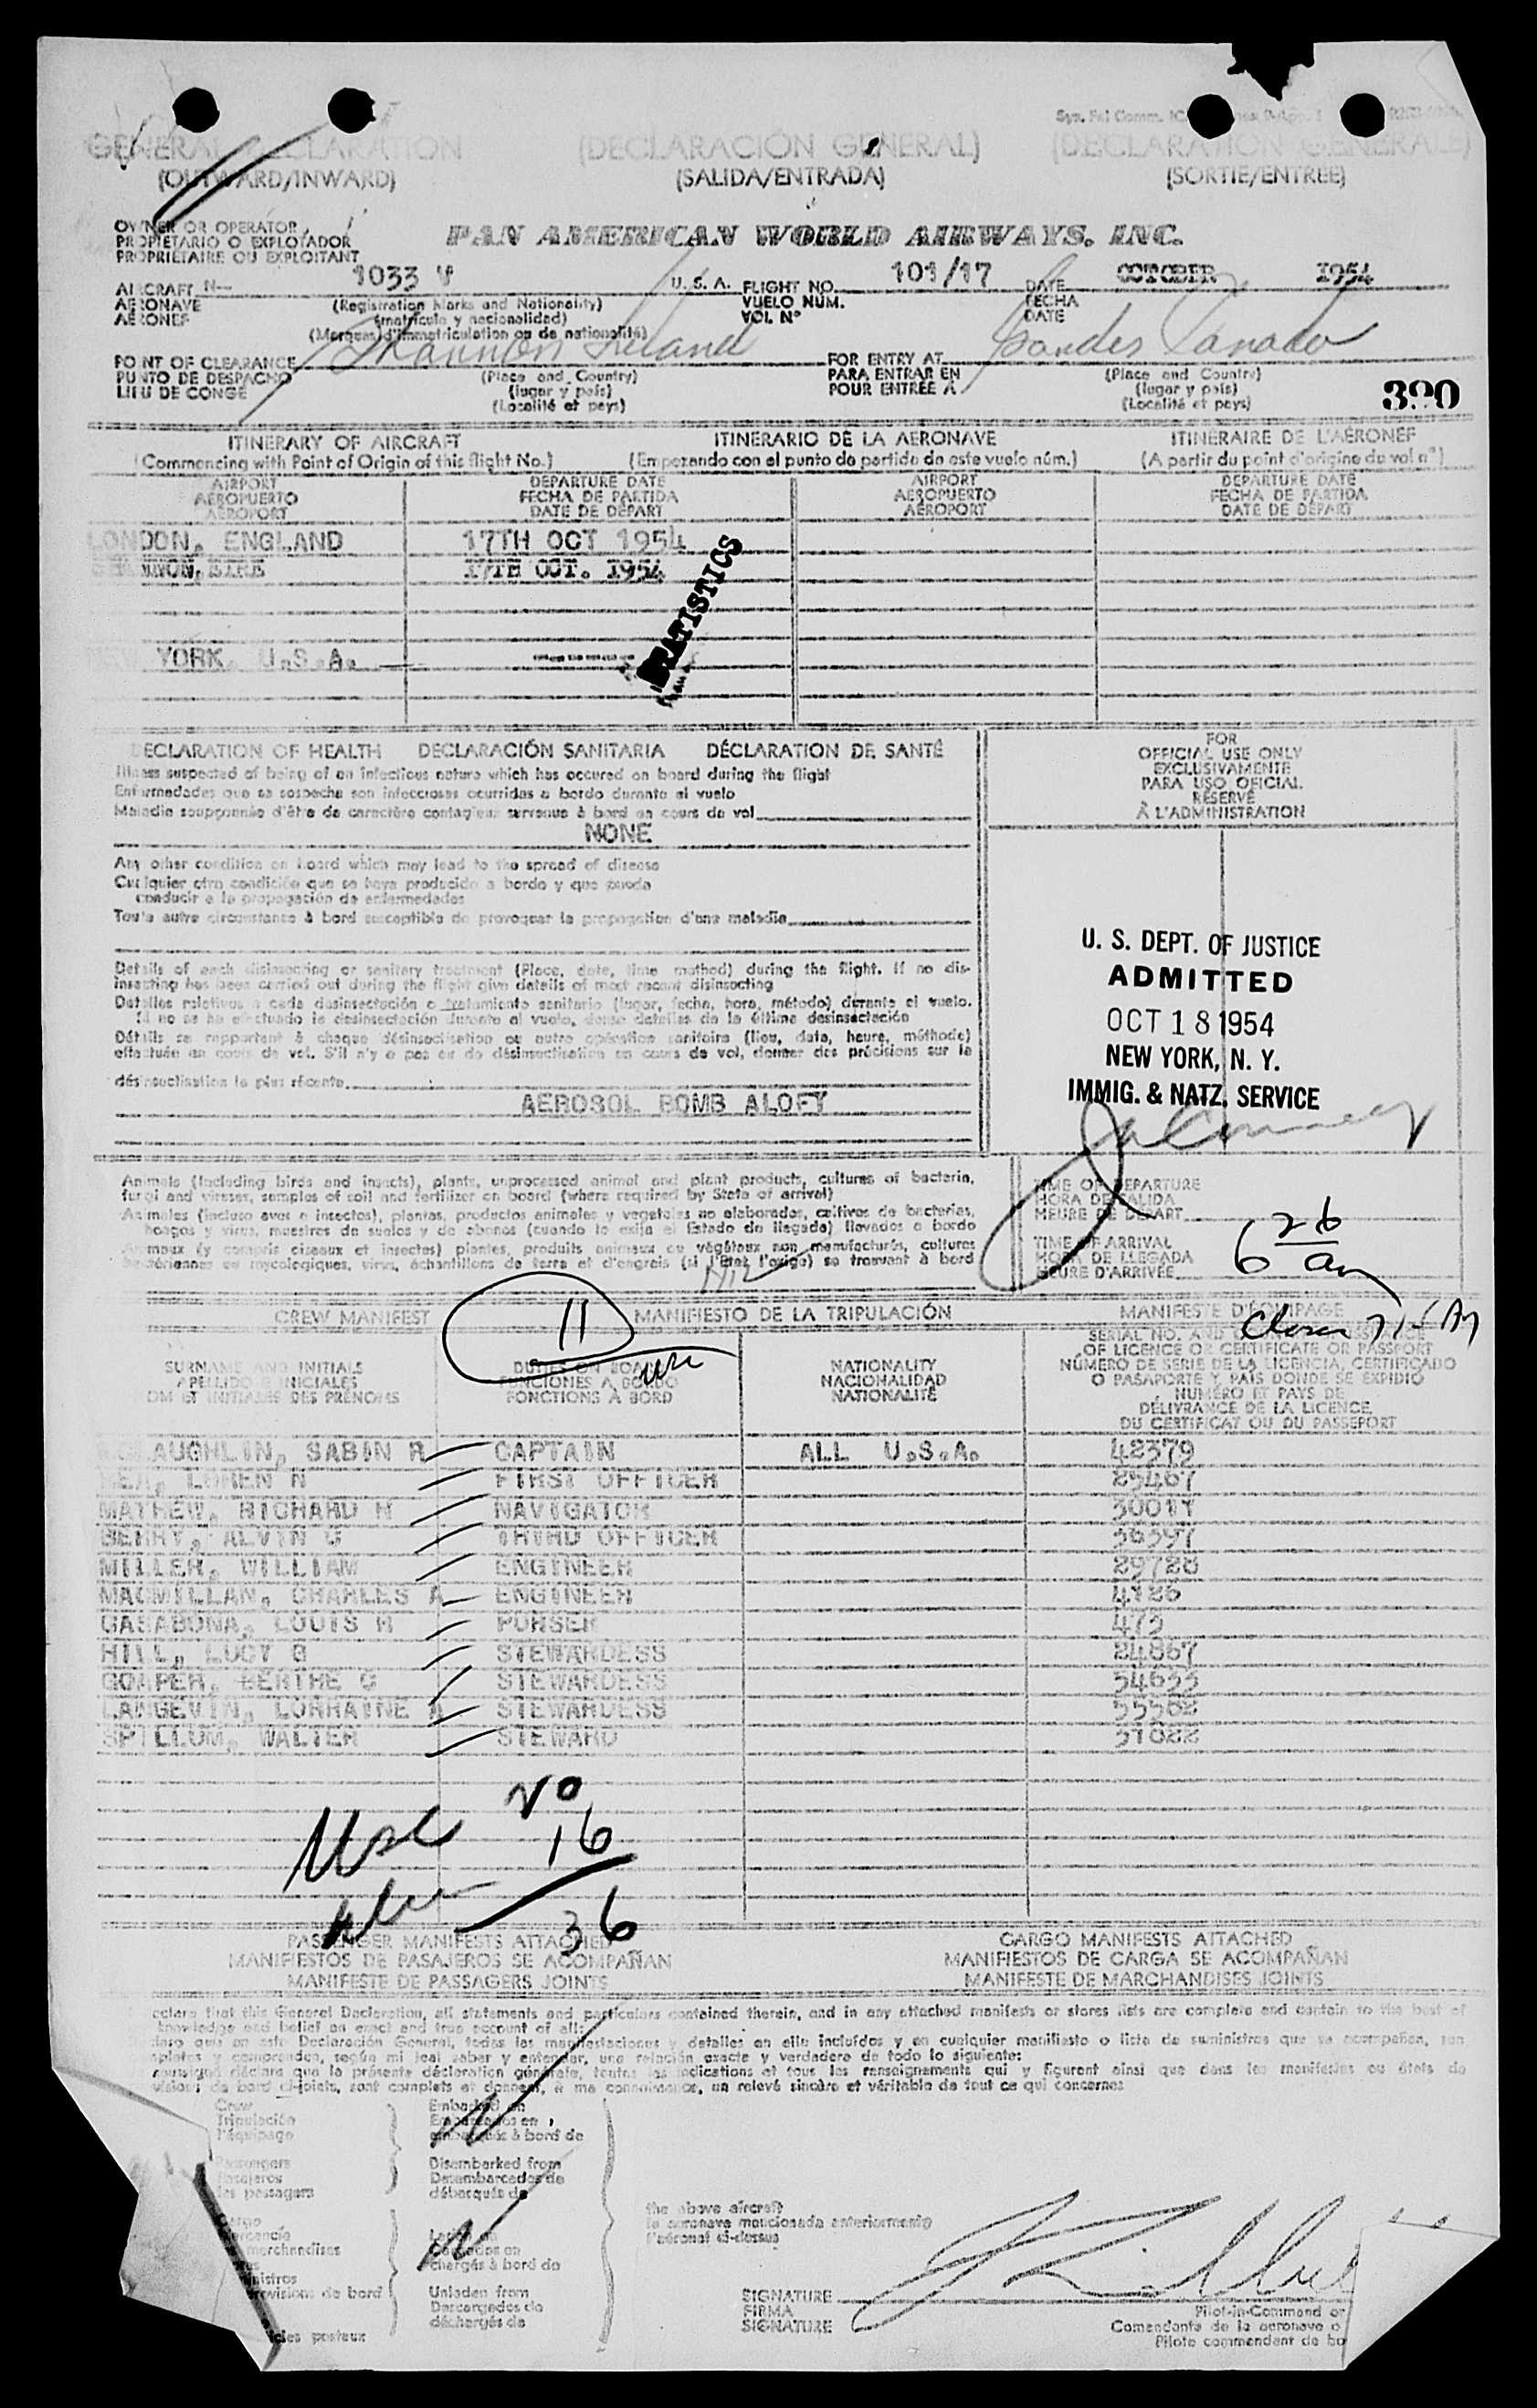 GENERAL DECLARATION (DECLARACIÓN GENERAL) (DÉCLARATION GÉNÉRALE)
(OUTWARD/INWARD) (SALIDA/ENTRADA) (SORTIE/ENTRÉE)
OWNER OR OPERATOR
PROPIETARIO O EXPLOTADOR PAN AMERICAN WORLD AIRWAYS, INC.
PROPRIÉTAIRE OU EXPLOITANT
AIRCRAFT N— 1033 V U. S. A. FLIGHT NO. 101/17 DATE OCTOBER 1954
AERONAVE (Registration Marks and Nationality) VUELO NÚM. FECHA
AÉRONEF (matrícula y nacionalidad) VOL Nº DATE
(Marques d'immatriculation ou de nationalité)
POINT OF CLEARANCE Shannon Ireland FOR ENTRY AT Gander Canada
PUNTO DE DESPACHO (Place and Country) PARA ENTRAR EN (Place and Country)
LIEU DE CONGÉ (lugar y país) POUR ENTRÉE À (lugar y país)
(Localité et pays) (Localité et pays)
390
ITINERARY OF AIRCRAFT ITINERARIO DE LA AERONAVE ITINÉRAIRE DE L'AÉRONEF
(Commencing with Point of Origin of this flight No.) (Empezando con el punto de partida de este vuelo núm.) (A partir du point d'origine du vol nº)
AIRPORT DEPARTURE DATE AIRPORT DEPARTURE DATE
AEROPUERTO FECHA DE PARTIDA AEROPUERTO FECHA DE PARTIDA
AÉROPORT DATE DE DÉPART AÉROPORT DATE DE DÉPART
LONDON, ENGLAND 17TH OCT 1954
SHANNON, EIRE 17TH OCT. 1954
STATISTICS
YORK, U.S.A.
DECLARATION OF HEALTH DECLARACIÓN SANITARIA DÉCLARATION DE SANTÉ
Illness suspected of being of an infectious nature which has occured on board during the flight
Enfermedades que se sospecha son infecciosas ocurridas a bordo durante el vuelo
Maladie soupçonnée d'être de caractère contagieux survenue à bord en cours de vol
NONE
Any other condition on board which may lead to the spread of disease
Cualquier otra condición que se haya producido a bordo y que pueda
conducir a la propagación de enfermedades
Toute autre circonstance à bord susceptible de provoquer la propagation d'une maladie
Details of each disinsecting or sanitary treatment (Place, date, time method) during the flight. If no dis-
insecting has been carried out during the flight give details of most recent disinsecting
Detalles relativos a cada desinsectación o tratamiento sanitario (lugar, fecha, hora, método) durante el vuelo.
Si no se ha efectuado la desinsectación durante el vuelo, dense detalles de la última desinsectación
Détails se rapportant à chaque désinsectisation ou autre opération sanitaire (lieu, date, heure, méthode)
effectuée en cours de vol. S'il n'y a pas eu de désinsectisation en cours de vol, donner des précisions sur la
désinsectisation la plus récente
AEROSOL BOMB ALOFT
FOR
OFFICIAL USE ONLY
EXCLUSIVAMENTE
PARA USO OFICIAL
RÉSERVÉ
À L'ADMINISTRATION
U. S. DEPT. OF JUSTICE
ADMITTED
OCT 18 1954
NEW YORK, N. Y.
IMMIG. & NATZ. SERVICE
Animals (Including birds and insects), plants, unprocessed animal and plant products, cultures of bacteria,
fungi and viruses, samples of soil and fertilizer on board (where required by State of arrival)
Animales (incluso aves e insectos), plantas, productos animales y vegetales no elaborados, cultivos de bacterias,
hongos y virus, muestras de suelos y de abonos (cuando lo exija el Estado de llegada) llevados a bordo
Animaux (y compris oiseaux et insectes) plantes, produits animaux ou végétaux non manufacturés, cultures
bactériennes ou mycologiques, virus, échantillons de terre et d'engrais (si l'État l'exige) se trouvant à bord
NIL
TIME OF DEPARTURE
HORA DE SALIDA
HEURE DE DÉPART
TIME OF ARRIVAL
HORA DE LLEGADA 6 26 am
HEURE D'ARRIVÉE
CREW MANIFEST 11 MANIFIESTO DE LA TRIPULACIÓN MANIFESTE D'ÉQUIPAGE
SURNAME AND INITIALS DUTIES ON BOARD NATIONALITY SERIAL NO. AND
APELLIDO E INICIALES FUNCIONES A BORDO NACIONALIDAD OF LICENCE OR CERTIFICATE OR PASSPORT
NOM ET INITIALES DES PRÉNOMS FONCTIONS À BORD NATIONALITÉ NÚMERO DE SERIE DE LA LICENCIA, CERTIFICADO
O PASAPORTE Y PAÍS DONDE SE EXPIDIÓ
NUMÉRO ET PAYS DE
DÉLIVRANCE DE LA LICENCE,
DU CERTIFICAT OU DU PASSEPORT
LAUGHLIN, SABIN R CAPTAIN ALL U.S.A. 42379
LOREN N FIRST OFFICER 25467
MATHEW, RICHARD H NAVIGATOR 30011
BERRY, ALVIN G THIRD OFFICER 36597
MILLER, WILLIAM ENGINEER 29728
MACMILLAN, CHARLES A ENGINEER 4126
CASABONA, LOUIS M PURSER 475
HILL, LUCY G STEWARDESS 24867
GOMPER, BERTHE G STEWARDESS 54653
LANGEVIN, LORRAINE A STEWARDESS 55562
SPILLUM, WALTER STEWARD 51022
USC 20
Alien 16
36
PASSENGER MANIFESTS ATTACHED CARGO MANIFESTS ATTACHED
MANIFIESTOS DE PASAJEROS SE ACOMPAÑAN MANIFIESTOS DE CARGA SE ACOMPAÑAN
MANIFESTE DE PASSAGERS JOINTS MANIFESTE DE MARCHANDISES JOINTS
declare that this General Declaration, all statements and particulars contained therein, and in any attached manifests or stores lists are complete and contain to the best of
knowledge and belief an exact and true account of all:
que en esta Declaración General, todas las manifestaciones y detalles en ella incluídos y en cualquier manifiesto o lista de suministros que se acompañan, son
y comprenden, según mi leal saber y entender, una relación exacta y verdadera de todo lo siguiente:
déclare que la présente déclaration générale, toutes les indications et tous les renseignements qui y figurent ainsi que dans les manifestes ou états de
de bord ci-joints, sont complets et donnent, à ma connaissance, un relevé sincère et véritable de tout ce qui concerne:
Crew Embarked on
Tripulación Embarcados en
l'équipage embarqués à bord de
Passengers Disembarked from
Pasajeros Desembarcados de
les passagers débarqués de
the above aircraft
la aeronave mencionada anteriormente
l'aéronef ci-dessus
merchandises chargés à bord de
de bord Unladen from
Descargados de
postaux déchargés de
SIGNATURE
FIRMA Pilot-in-Command or
SIGNATURE Comandante de la aeronave o
Pilote commandant de bo